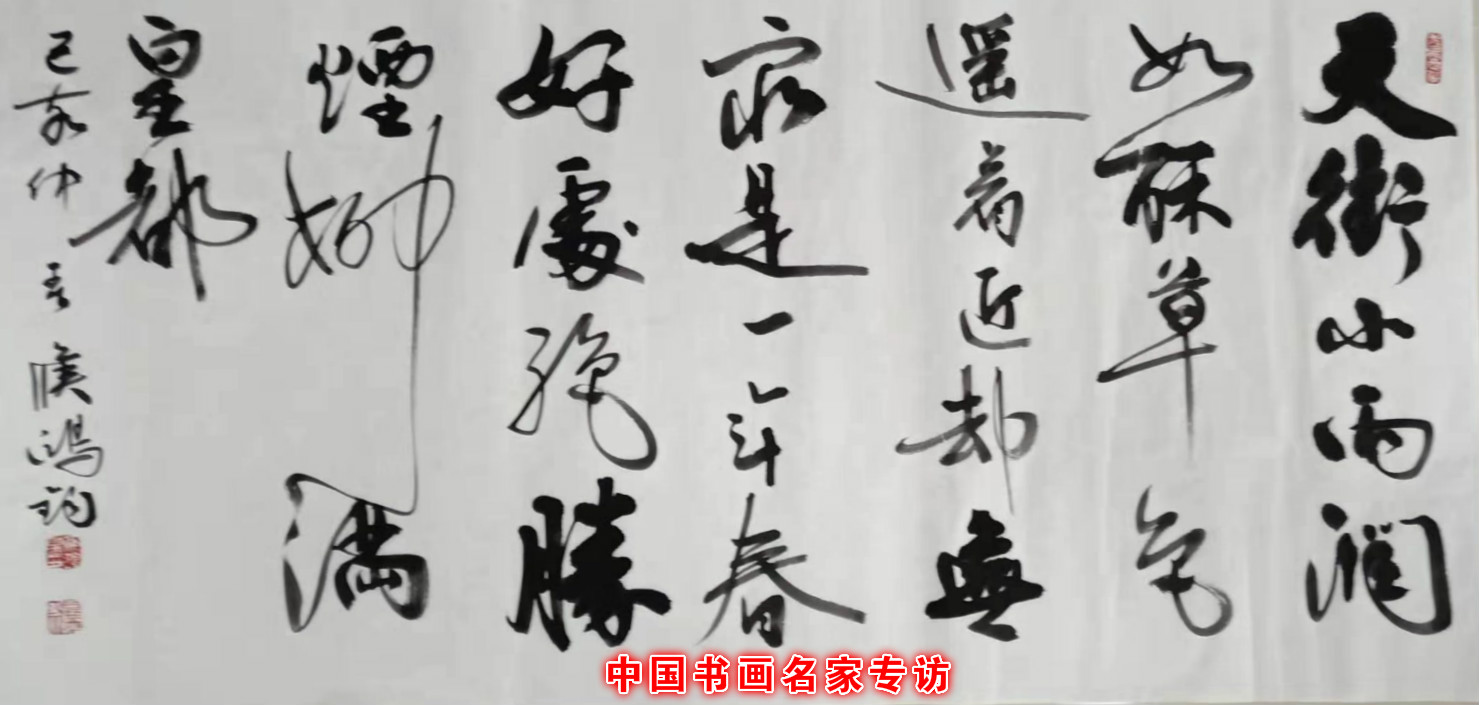 天街小雨潤
如酥草色
遥看近却無
最是一年春
好處絕勝
煙柳滿
皇都
己亥仲春侯鴻鈞
中国书画名家专访